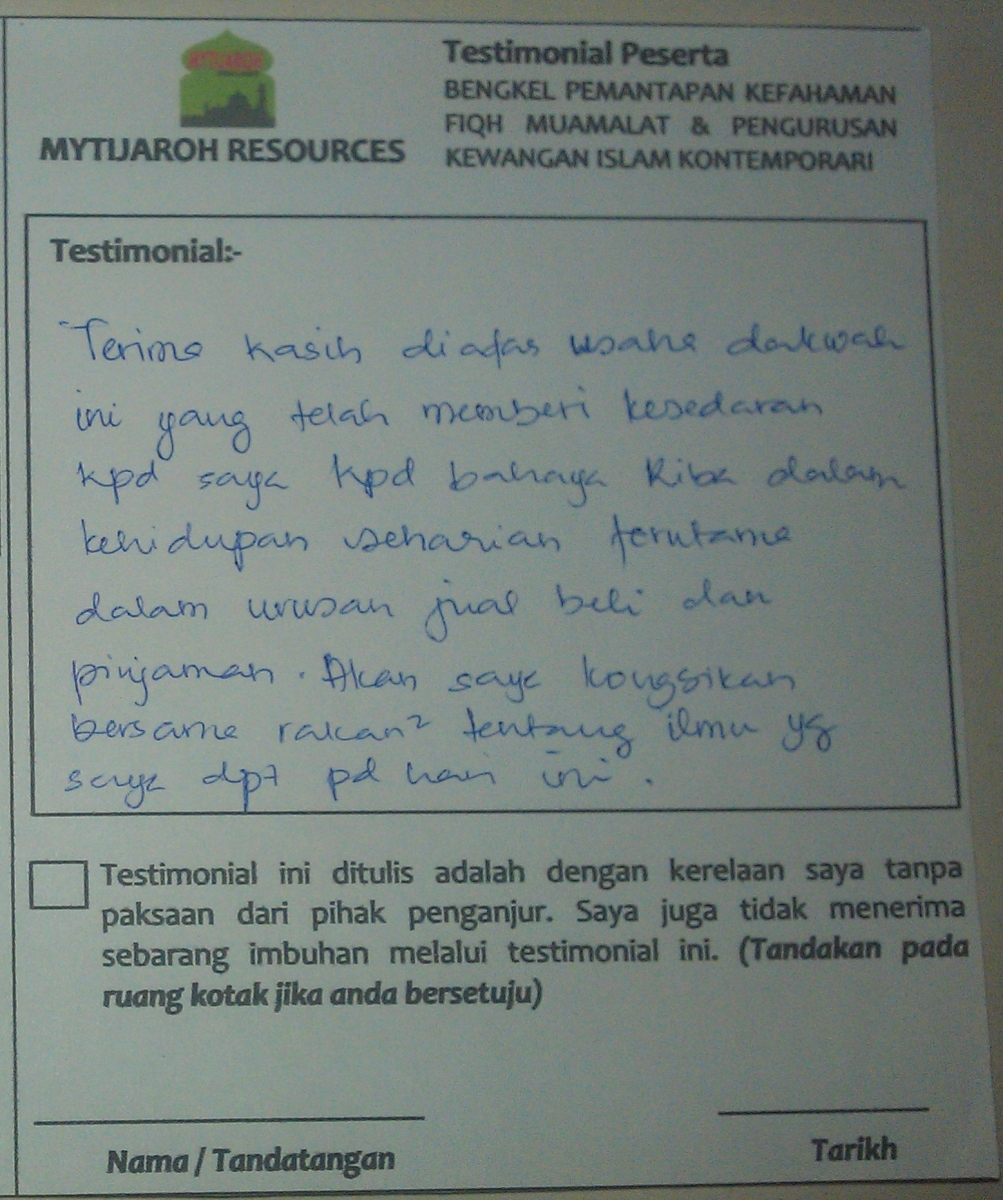 MYTIJAROH
MYTIJAROH RESOURCES
Testimonial Peserta
BENGKEL PEMANTAPAN KEFAHAMAN
FIQH MUAMALAT & PENGURUSAN
KEWANGAN ISLAM KONTEMPORARI
Testimonial:-
Terima kasih diatas usaha dakwah
ini yang telah memberi kesedaran
kpd saya kpd bahaya Riba dalam
kehidupan seharian terutama
dalam urusan jual beli dan
pinjaman. Akan saya kongsikan
bersama rakan² tentang ilmu yg
saya dpt pd hari ini.
Testimonial ini ditulis adalah dengan kerelaan saya tanpa
paksaan dari pihak penganjur. Saya juga tidak menerima
sebarang imbuhan melalui testimonial ini. (Tandakan pada
ruang kotak jika anda bersetuju)
Nama / Tandatangan
Tarikh